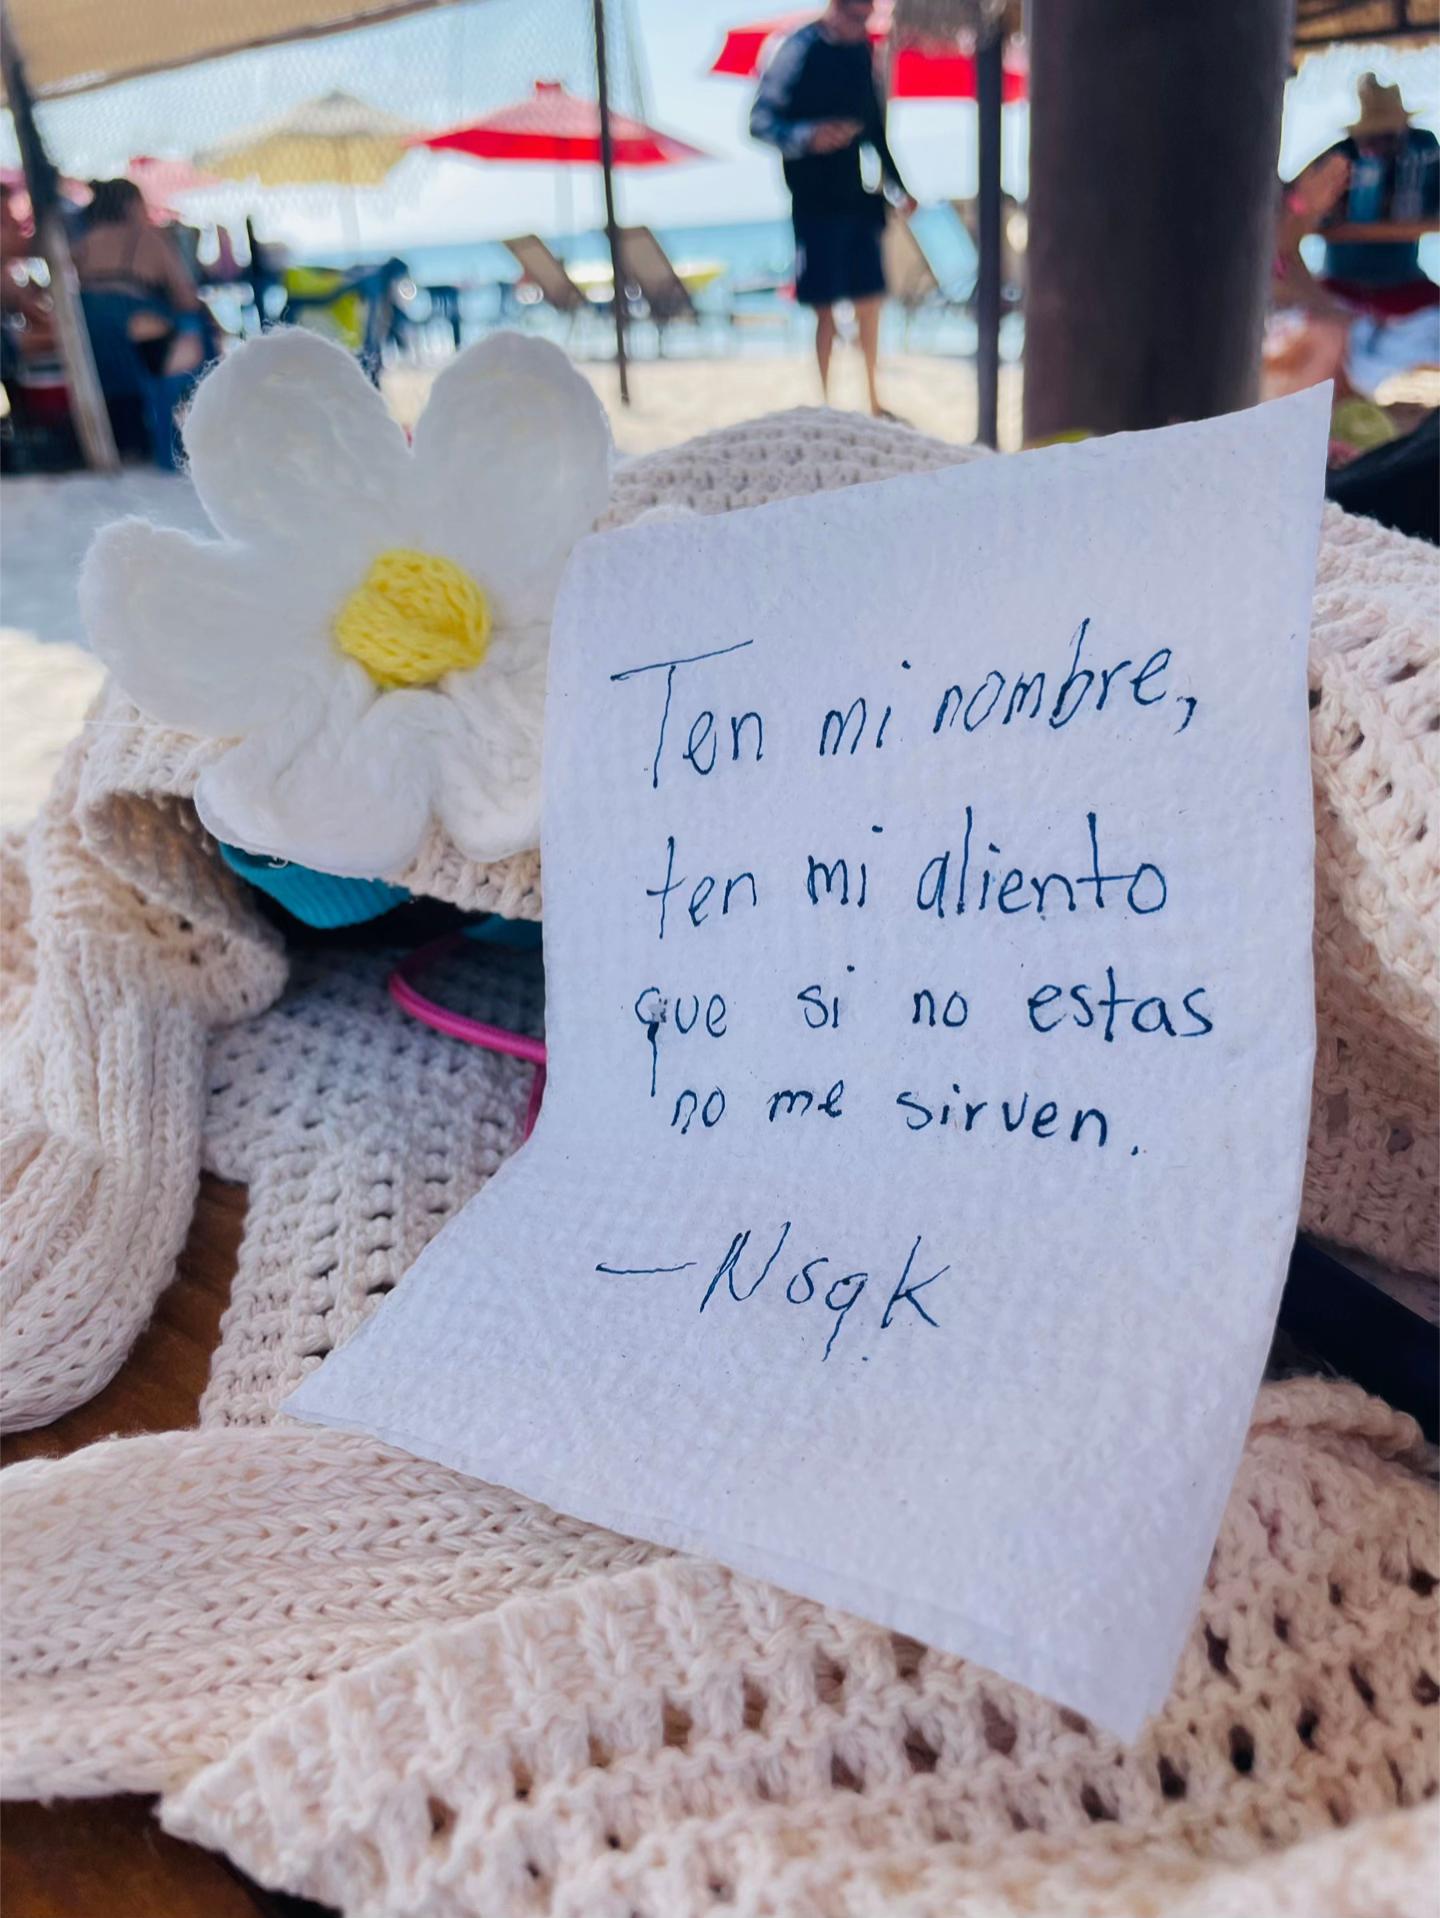 Ten mi nombre,
ten mi aliento
que si no estas
no me sirven.
—Nsqk